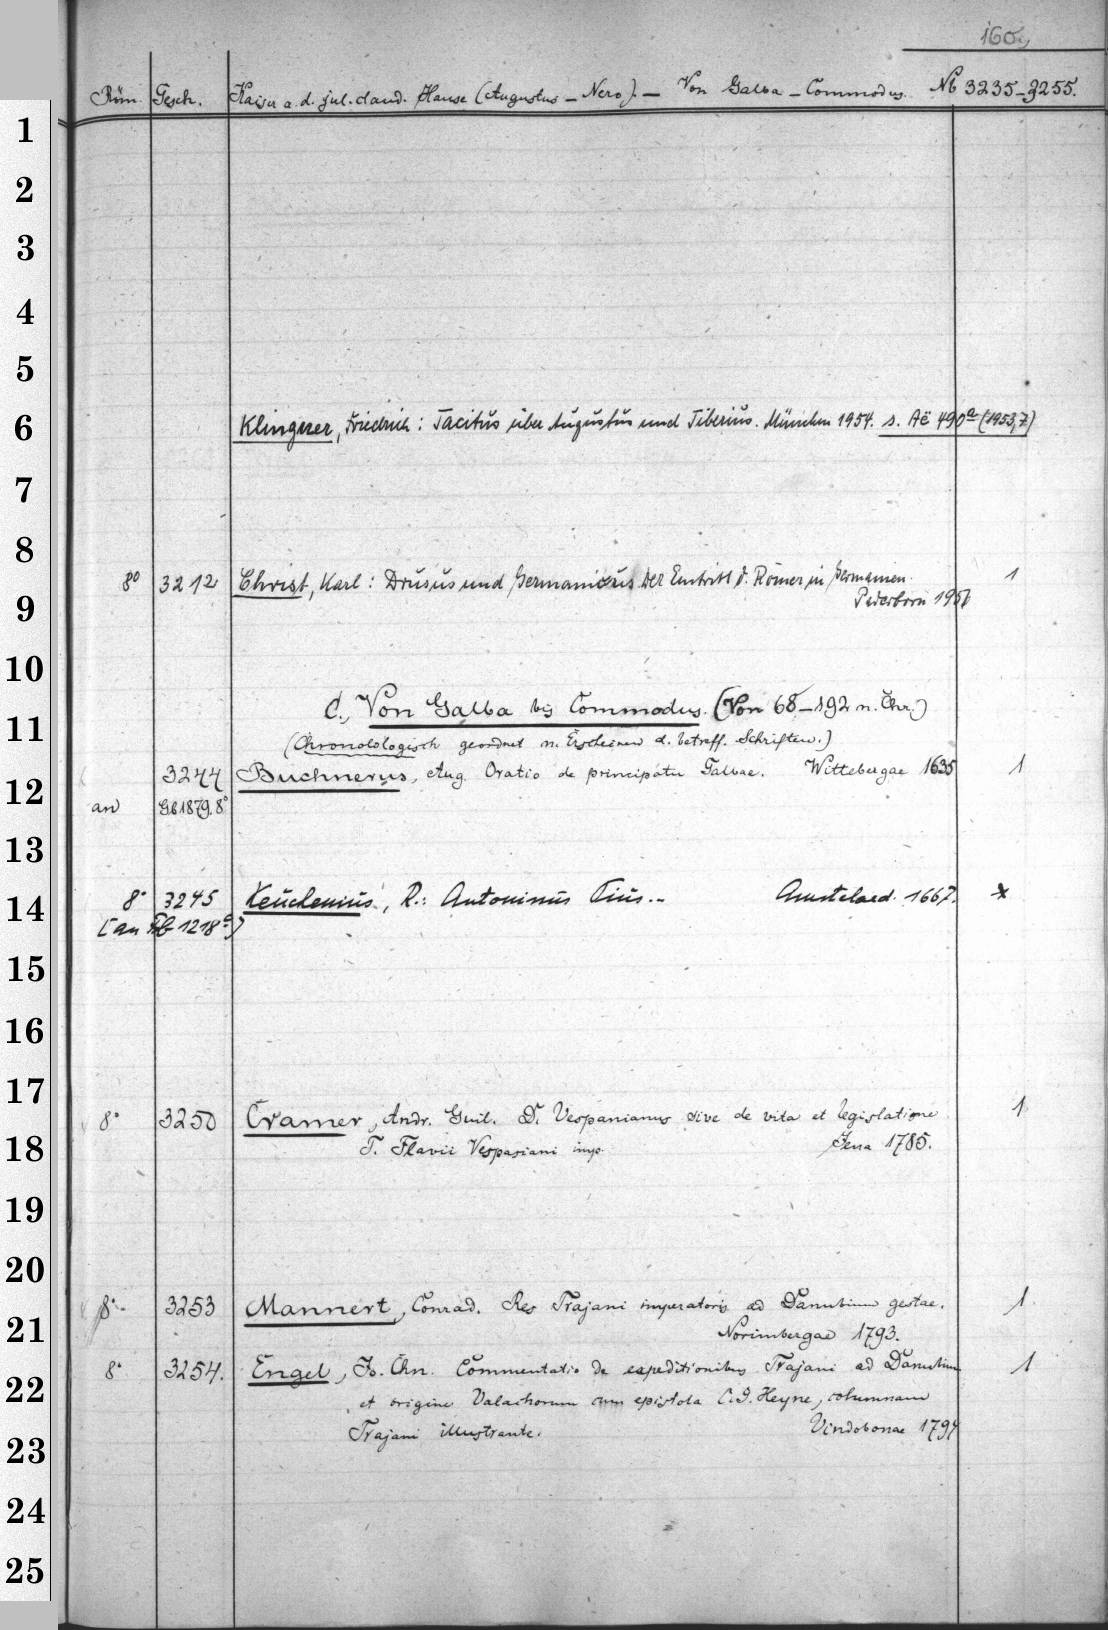 160
Röm. Gesch. Kaiser a. d. jul. claud. Hause (Augustus – Nero). – Von Galba – Commodus. № 3235–3255.
1
2
3
4
5
6 Klingner, Friedrich: Tacitus über Augustus und Tiberius. München 1954. s. Aë 490ª (1953,7)
7
8
8° 3212 Christ, Karl: Drusus und Germanicus. Der Eintritt d. Römer in Germanien. 1
9 Paderborn 1956
10
C., Von Galba bis Commodus. (Von 68–192 n. Chr.)
11
(Chronolologisch geordnet n. Erscheinen d. betreff. Schriften.)
3244 Buchnerus, Aug. Oratio de principatu Galbae. Wittebergae 1635 1
12
an Gb 1879. 8°
13
14 8° 3245 Keuchenius, R.: Antoninus Pius.– Amstelaed. 1667. x
[an 1218ª)
15
16
17
8° 3250 Cramer, Andr. Guil. D. Vespanianus sive de vita et legislatione 1
18 T. Flavii Vespasiani imp. Jena 1785.
19
20
8° 3253 Mannert, Conrad. Res Trajani imperatoris ad Danubium gestae. 1
21 Norimbergae 1793.
8° 3254. Engel, Jo. Chn. Commentatio de expeditionibus Trajani ad Danubium 1
22 et origine Valachorum cum epistola C. G. Heyne, columnam
23 Trajani illustrante. Vindobonae 1794
24
25